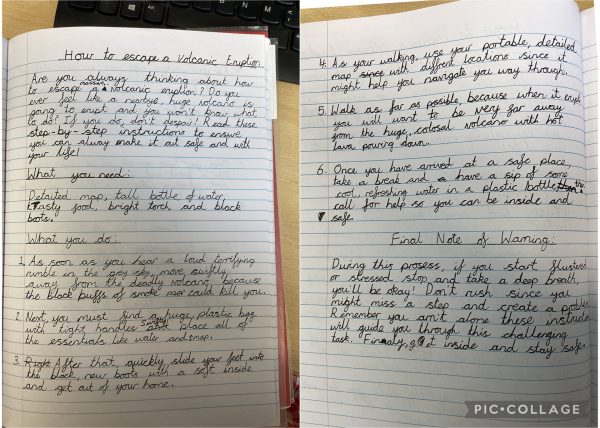 How to escape a Volcanic Eruption
Are you always thinking about how
to escape a massive volcanic eruption? Do you
ever feel like a massive, huge volcano is
going to erupt and you won't know what
to do? If you do, don't despair! Read these
step-by-step instructions to ensure
you can always make it out safe and with
your life!
What you need:
Detailed map, tall bottle of water,
tasty food, bright torch and black
boots.
What you do:
1. As soon as you hear a loud terrifying
rumble in the grey sky, move swiftly
away from the deadly volcano because
the black puffs of smoke could kill you.
2. Next, you must find a huge, plastic bag
with tight handles place all of
the essentials like water and map.
3. Right After that, quickly slide your feet into
the black, new boots with a soft inside
and get out of your home.
4. As your walking, use your portable, detailed
map since with diffrent locations since it
might help you navigate you way through.
5. Walk as far as possible, because when it erupts
you will want to be very far away
from the huge, colosal volcano with hot
lava pouring down.
6. Once you have arrived at a safe place,
take a break and have a sip of some
cool, refreshing water in a plastic bottle
call for help so you can be inside and
safe.
Final Note of Warning:
During this prosess, if you start
or stressed stop and take a deep breath,
you'll be okay! Don't rush since you
might miss a step and create a problem
Remember you ain't alone these
will guide you through this challenging
task. Finaly, get inside and stay safe.
PIC•COLLAGE